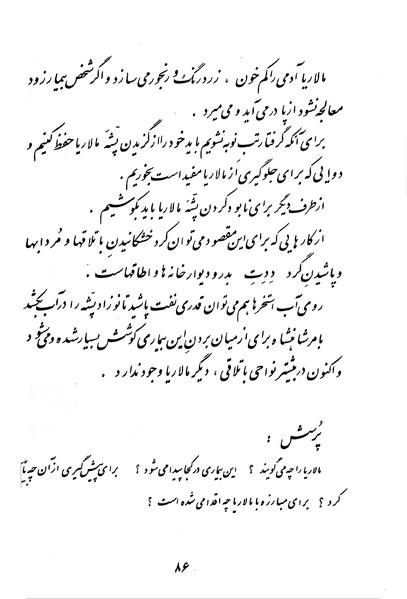 مالاریا آدمی را کم خون ، زرد رنگ و رنجور می سازد و اگر شخص بیمار زود
معالجه نشود از پا در می آید و می میرد .
برای آنکه گرفتار تب نوبه نشویم باید خود را از گزیدن پشّه مالاریا حفظ کنیم و
دوایی که برای جلوگیری از مالاریا مفید است بخوریم .
از طرف دیگر برای نابود کردن پشّه مالاریا باید بکوشیم .
از کارهایی که برای این مقصود می توان کرد خشکانیدنِ باتلاقها و مُردابها
و پاشیدنِ گَردِ دِ دِ تِ بدر و دیوار خانه ها و اطاقهاست .
روی آب استخرها هم می توان قدری نفت پاشید تا نوزاد پشّه را در آب بکشد
بامر شاهنشاه برای از میان بردنِ این بیماری کوشش بسیار شده و می شود
و اکنون در بیشتر نواحی باتلاقی ، دیگر مالاریا وجود ندارد .
پُرسش :
مالاریا را چه می گویند ؟ این بیماری در کجا پیدا می شود ؟ برای پیش گیری از آن چه باید
کرد ؟ برای مبارزه با مالاریا چه اقدامی شده است ؟
۸۶